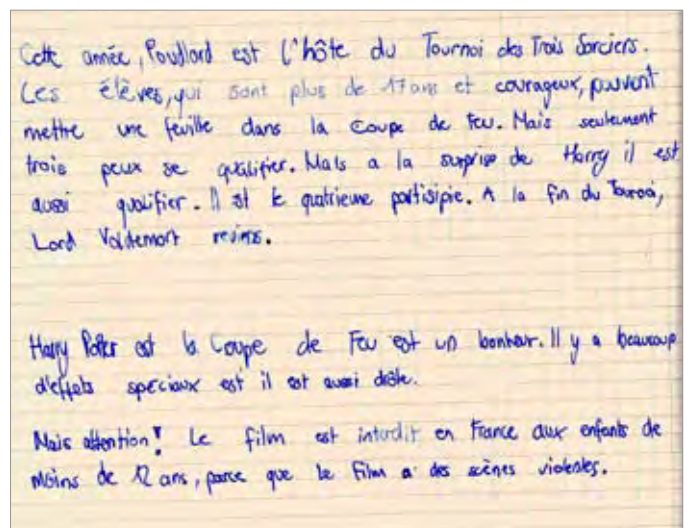 Cette année, Poudlard est l'hôte du Tournoi des Trois Sorciers.
Les élèves, qui sont plus de 17 ans et courageux, peuvent
mettre une feuille dans la Coupe de Feu. Mais seulement
trois peux se qualifier. Mais a la surprise de Harry il est
aussi qualifier. Il st le quatrieme partisipie. A la fin du
Lord Voldemort
Harry Potter est la Coupe de Feu est un bonheur. Il y a beaucoup
d'effets speciaux est il est aussi drôle.
Mais attention! Le film est interdit en France aux enfants de
moins de 12 ans, parce que le film a des scènes violentes.